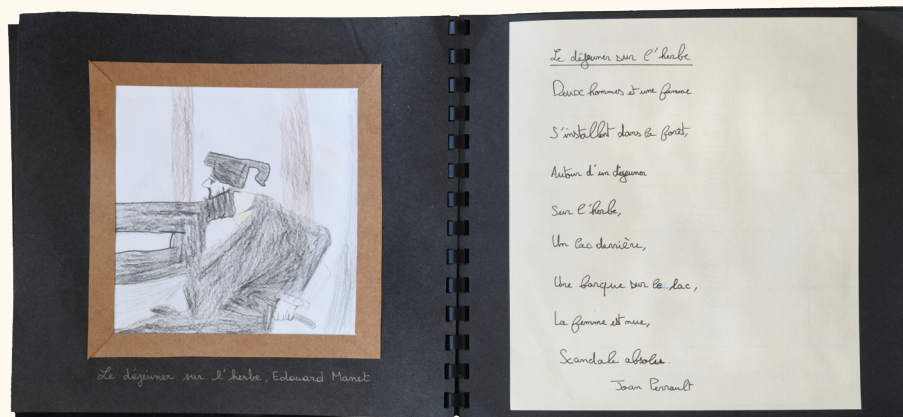 Le déjeuner sur l'herbe, Edouard Manet
Le déjeuner sur l'herbe
Deux hommes et une femme
S'installent dans la forêt,
Autour d'un déjeuner
Sur l'herbe,
Un lac derrière,
Une barque sur le lac,
La femme est nue,
Scandale absolu.
Joan Perrault